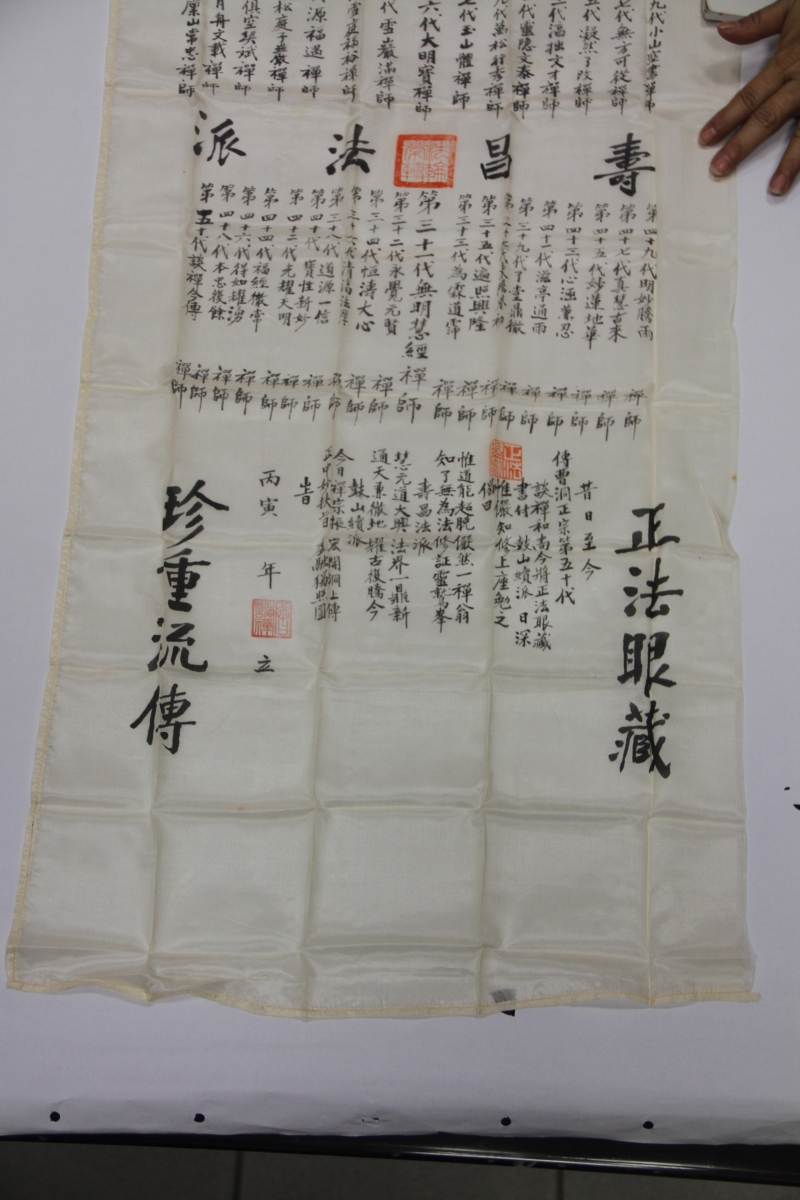 九代小山
七代無方可從禪師
五代凝然了改禪師
代湛拙文才禪師
代靈隱文泰禪師
九代萬松行秀禪師
七代玉山體禪師
六代大明寶禪師
代雪巖滿禪師
雪庭福裕禪師
源福遇禪師
松庭子嚴禪師
俱空契斌禪師
月舟文載禪師
廩山常忠禪師
壽昌法派
第四十九代明妙騰雨禪師
第四十七代真慧古來禪師
第四十五代妙蓮地華禪師
第四十三代心溫葉忍禪師
第四十一代滋亭通雨禪師
第三十九代了堂鼎徹禪師
禪師
第三十五代遍照興隆禪師
第三十三代為霖道霈禪師
第三十一代無明慧經禪師
第三十二代永覺元賢禪師
第三十四代恒濤大心禪師
第三十六代清淳法厚禪師
第三十八代道源一信禪師
第四十代寶性新妙禪師
第四十二代光耀天明禪師
第四十四代福經徹常禪師
第四十六代得如耀湧禪師
第四十八代本忠復餘禪師
第五十代談禪今傳禪師
正法眼藏
昔日至今
傳曹洞正宗第五十代
談禪和尚今將正法眼藏
書付鼓山續派 日深
惟儼知修上座勉之
偈曰
惟道能超脫儼然一禪翁
知了無為法修証靈鷲峯
壽昌法派
慧元道大興法界一鼎新
通天兼徹地耀古復騰今
鼓山續派
今日禪宗振宏開洞上傳
告
丙寅年立
珍重流傳